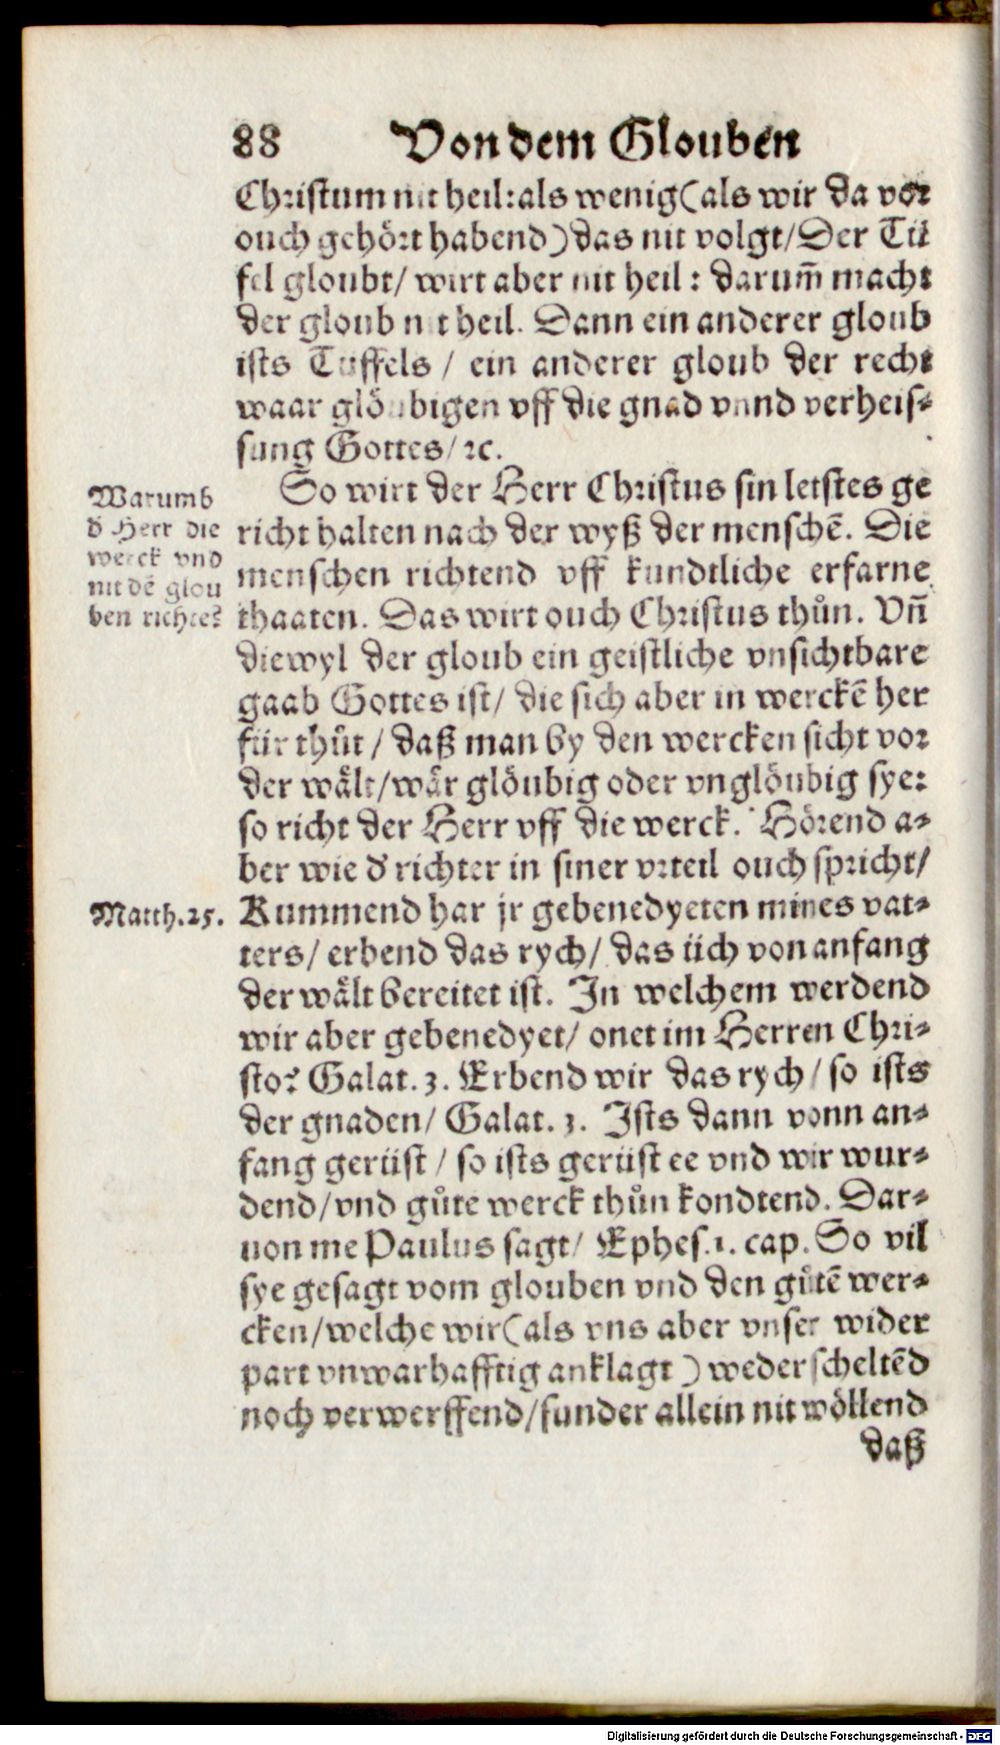 88 Von dem Glouben
Christum nit heil: als wenig (als wir da vor
ouch gehört habend) das nit volgt / Der Tü
fel gloubt / wirt aber nit heil : darum̄ macht
der gloub nit heil. Dann ein anderer gloub
ists Tüffels / ein anderer gloub der recht
waar glöubigen vff die gnad vnnd verheis⸗
sung Gottes / ꝛc.
So wirt der Herr Christus sin letstes ge
richt halten nach der wyß der menschē. Die
menschen richtend vff kundtliche erfarne
thaaten. Das wirt ouch Christus thůn. Vn̄
diewyl der gloub ein geistliche vnsichtbare
gaab Gottes ist / die sich aber in werckē her
für thůt / daß man by den wercken sicht vor
der wält / wär glöubig oder vnglöubig sye:
so richt der Herr vff die werck. Hörend a⸗
ber wie d' richter in siner vrteil ouch spricht /
Kummend har jr gebenedyeten mines vat⸗
ters / erbend das rych / das üch von anfang
der wält bereitet ist. In welchem werdend
wir aber gebenedyet / onet im Herren Chri⸗
sto? Galat. 3. Erbend wir das rych / so ists
der gnaden / Galat. 3. Ists dann vonn an⸗
fang gerüst / so ists gerüst ee vnd wir wur⸗
dend / vnd gůte werck thůn kondtend. Dar⸗
uon me Paulus sagt / Ephes. 1. cap. So vil
sye gesagt vom glouben vnd den gůtē wer⸗
cken / welche wir (als vns aber vnser wider
part vnwarhafftig anklagt) weder scheltēd
noch verwerffend / sunder allein nit wöllend
daß
Warumb
d' Herr die
werck vnd
nit dē glou
ben richte?
Matth. 25.
Digitalisierung gefördert durch die Deutsche Forschungsgemeinschaft - DFG